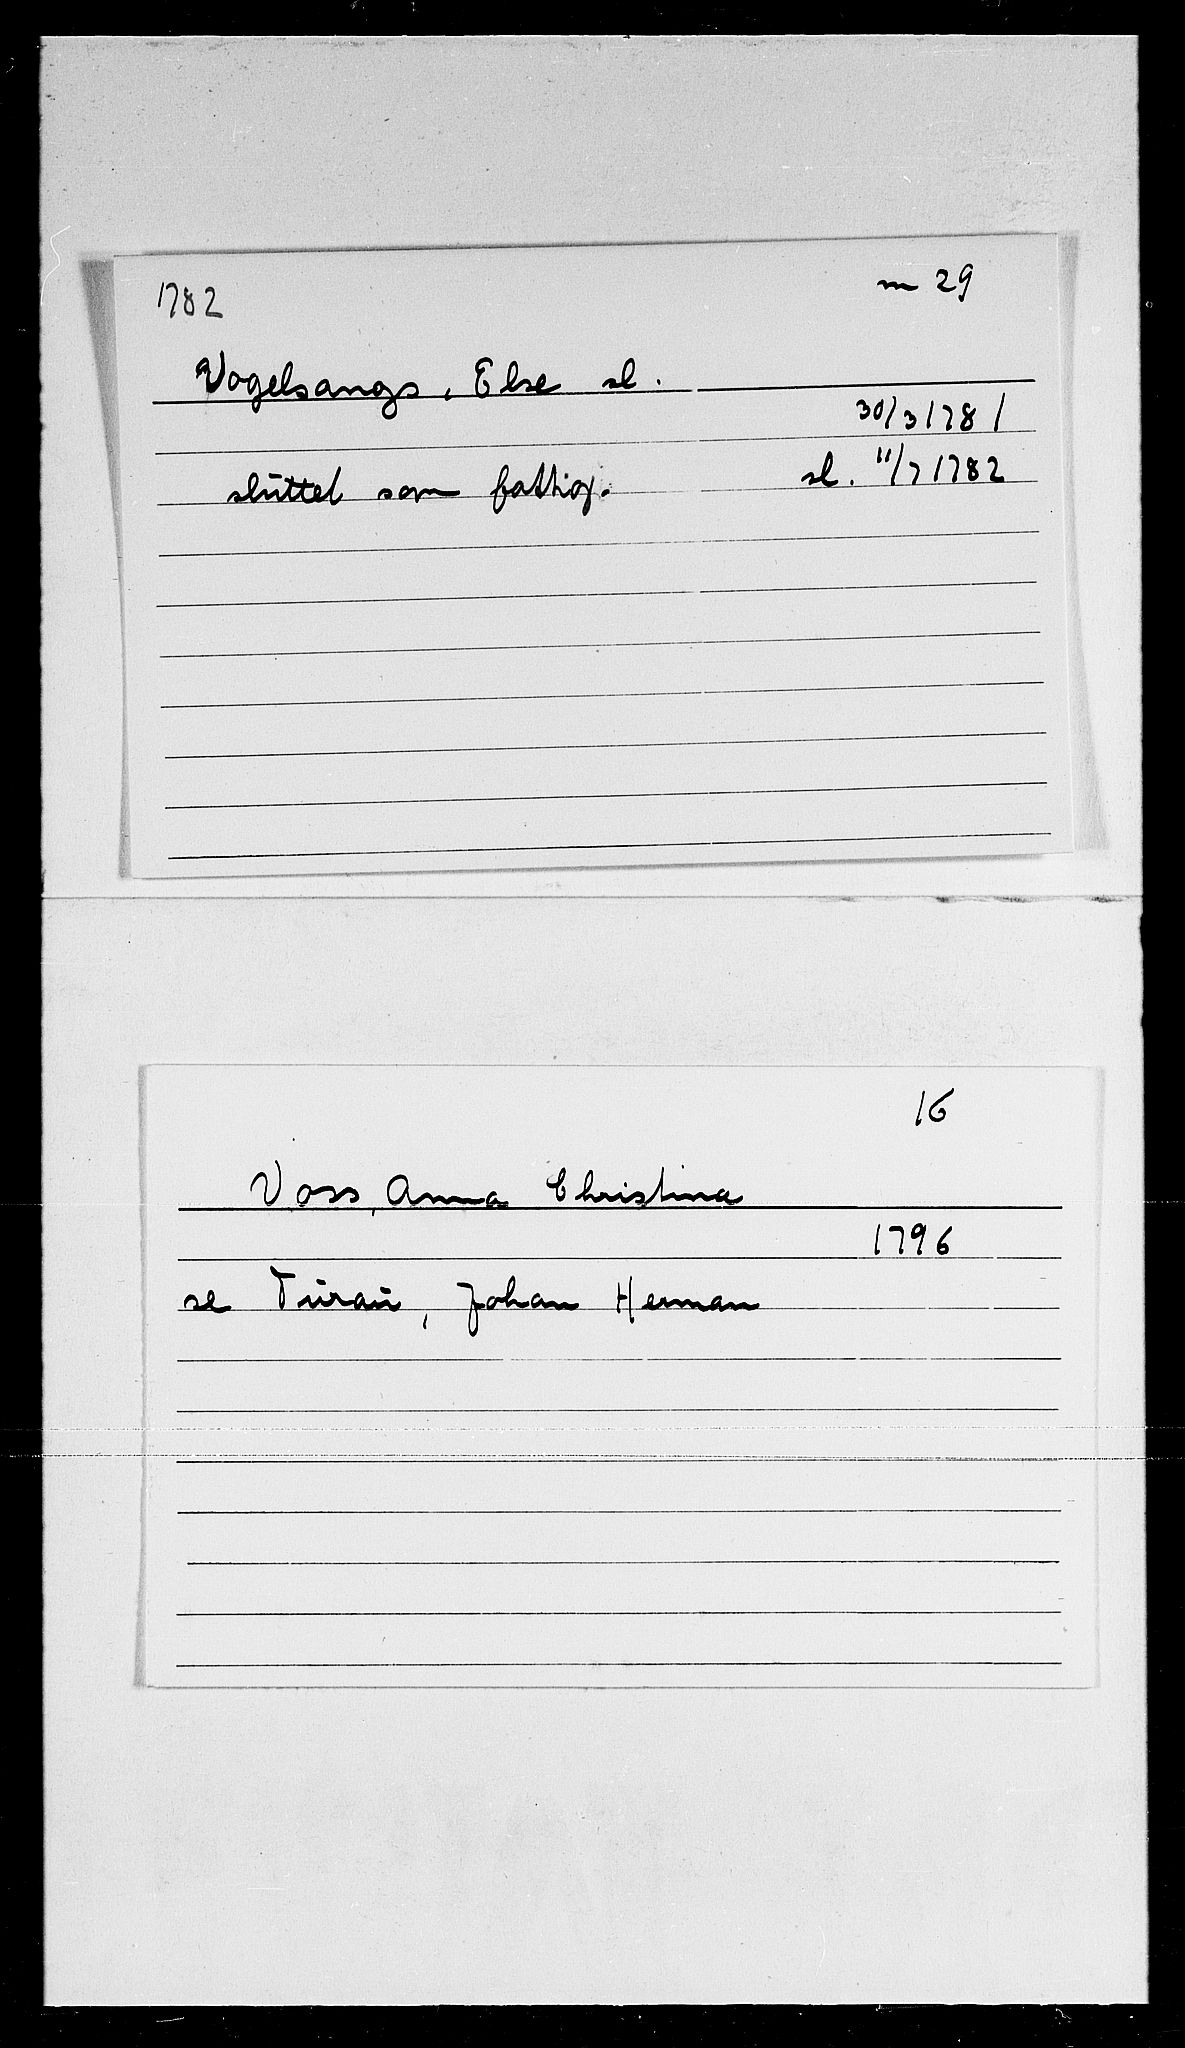 1782 m 29
Vogelsangs, Else sl.
30/3 1781
sluttet som fattig. sl. 11/7 1782
16
Voss, Anna Christina
1796
se Turau, Johan Herman